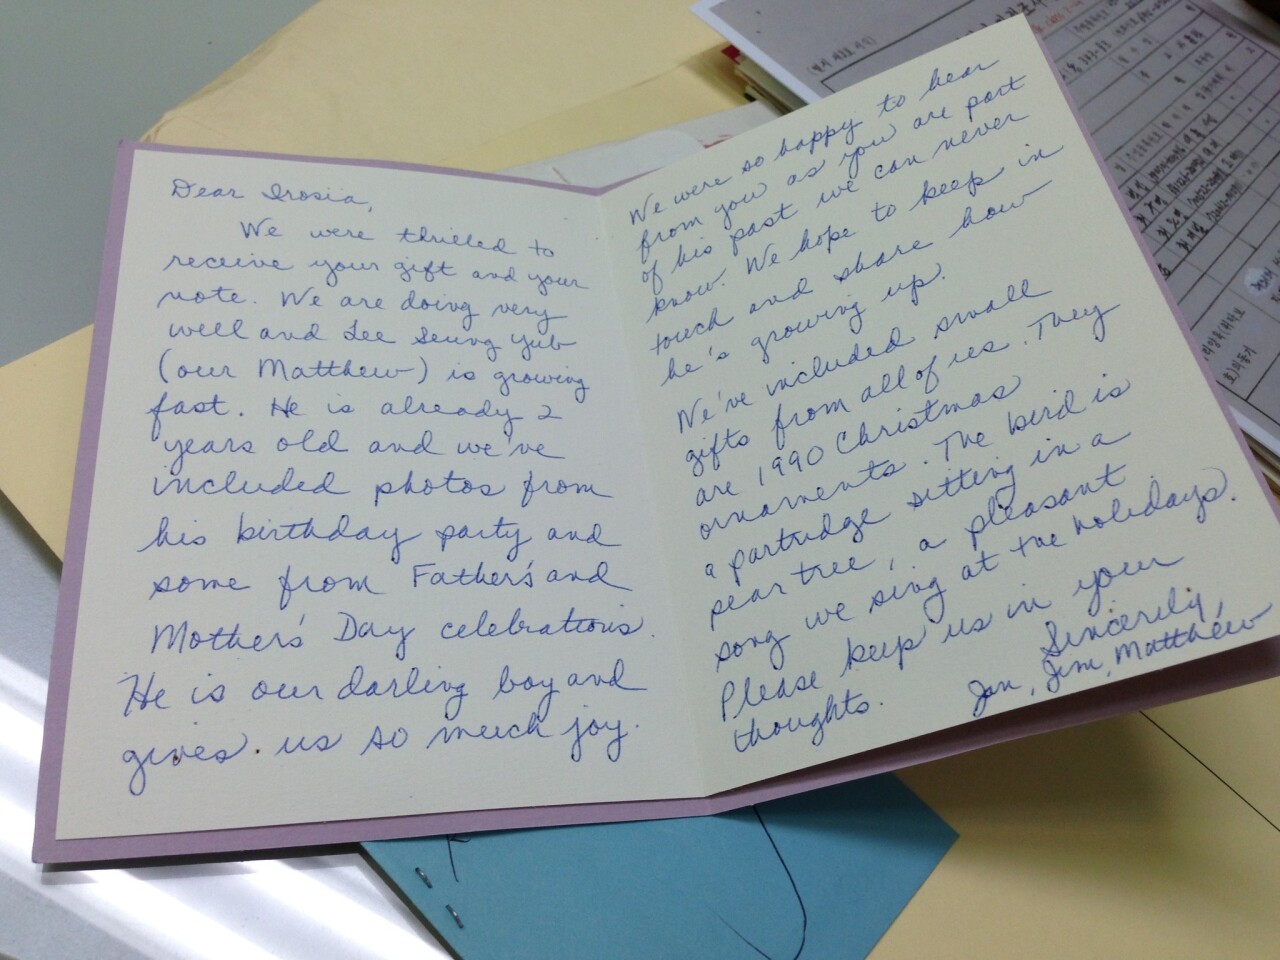 Dear Irosia,
We were thrilled to
receive your gift and your
note. We are doing very
well and Lee Seung Yub
(our Matthew) is growing
fast. He is already 2
years old and we've
included photos from
his birthday party and
some from Father's and
Mother's Day celebrations.
He is our darling boy and
gives us so much joy.
We were so happy to hear
from you as you are part
of his past we can never
know. We hope to keep in
touch and share how
he's growing up.
We've included small
gifts from all of us. They
are 1990 Christmas
ornaments. The bird is
a partridge sitting in a
pear tree, a pleasant
song we sing at the holidays.
Please keep us in your
thoughts.
Sincerely,
Jan, Jim, Matthew